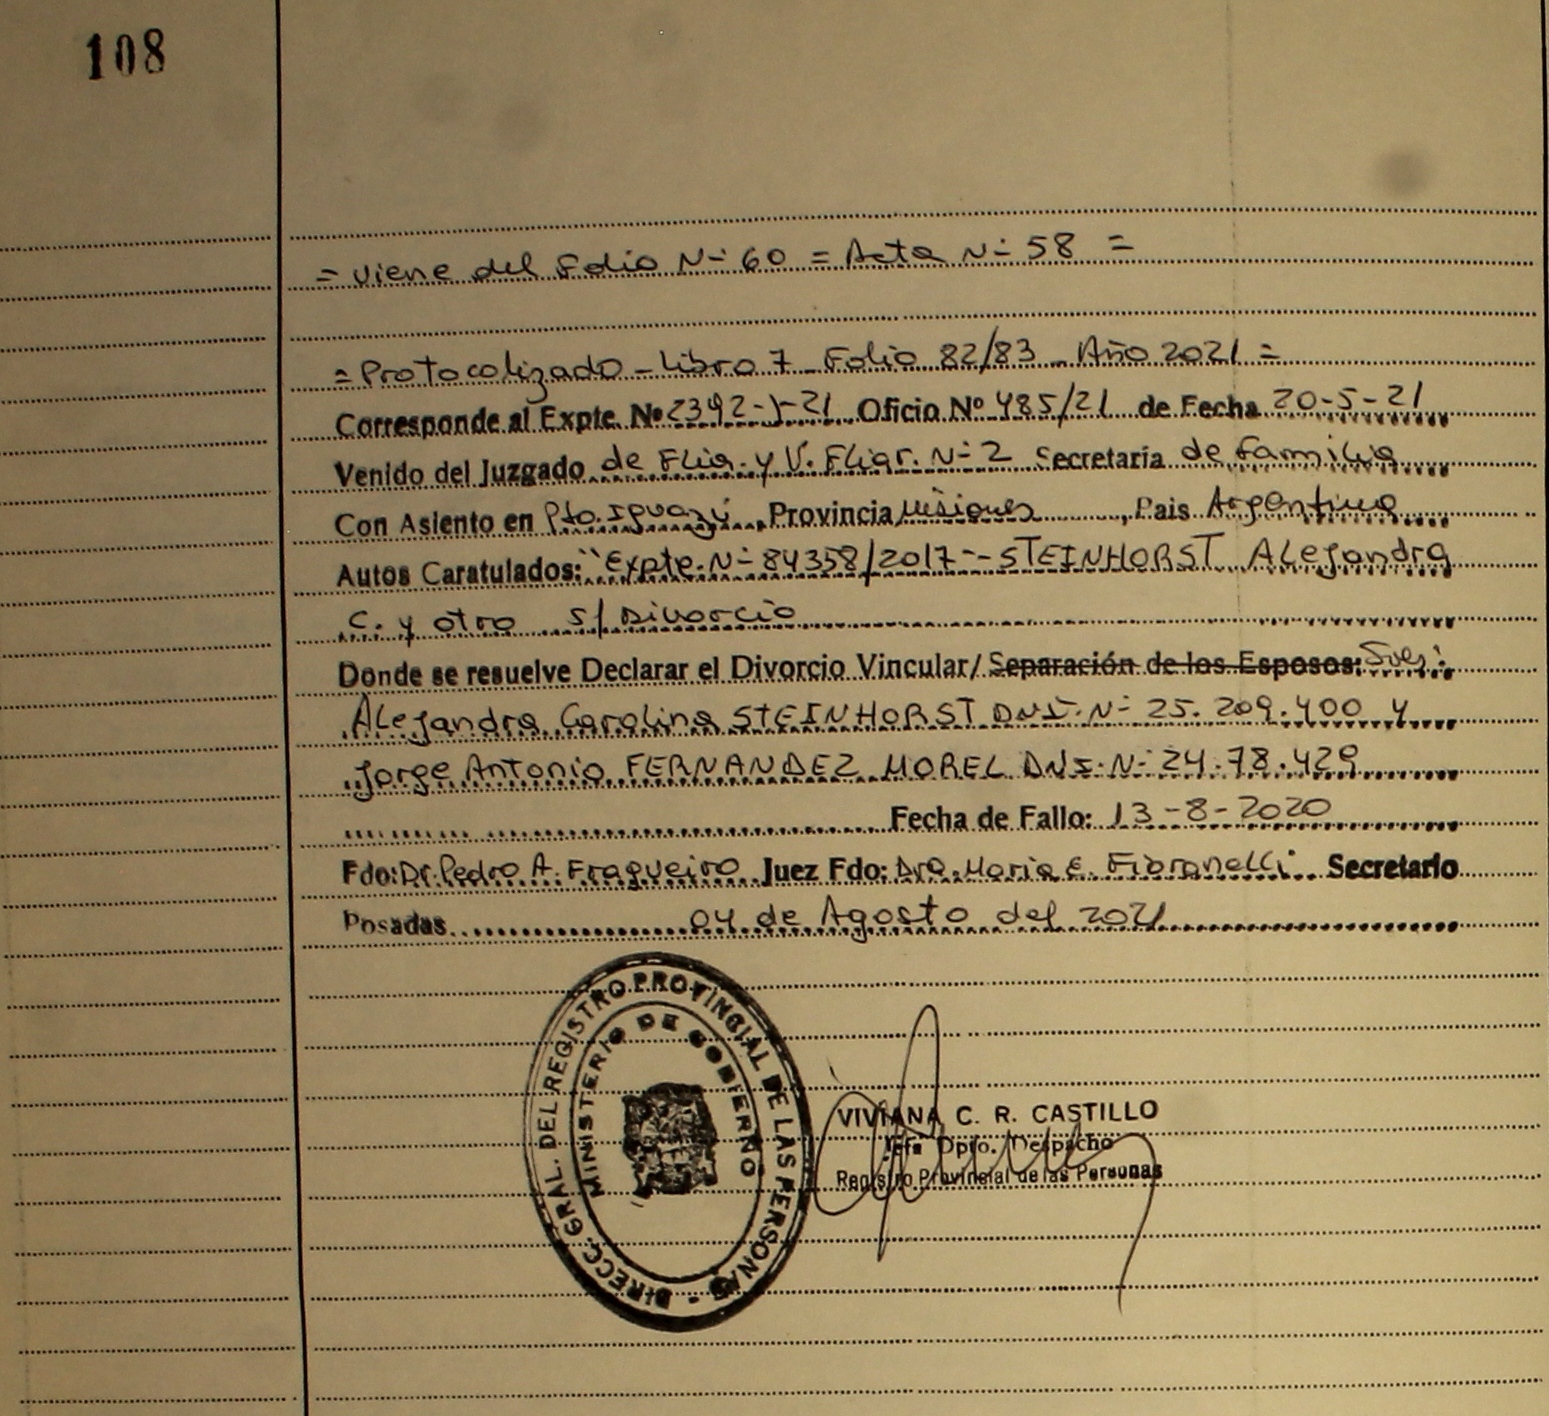 108
= Viene del Folio Nº 60 = Acta Nº 58 =
= Protocolizado - Libro 7 - Folio 82/83 - Año 2021 =
Corresponde al Expte. Nº 2392-J-21 Oficio Nº 485/21 de Fecha 20-5-21
Venido del Juzgado de Flia. y V. Fliar. Nº 2 Secretaria de Familia
Con Asiento en Pto. Iguazú, Provincia Misiones, Pais Argentina
Autos Caratulados: "Expte. Nº 84358/2017 - STEINHORST Alejandra
C. y otro s/ Divorcio
Donde se resuelve Declarar el Divorcio Vincular/ Separación de los Esposos:
Alejandra Carolina STEINHORST DNI. Nº 25.209.400 y
Jorge Antonio FERNANDEZ MOREL DNI. Nº 24.78.429
Fecha de Fallo: 13-8-2020
Fdo: Dr. Pedro A. Fragueiro Juez Fdo: Dra. Maria E. Fioranelli Secretario
Posadas 04 de Agosto del 2021
DIRECC. GRAL. DEL REGISTRO PROVINCIAL DE LAS PERSONAS
MINISTERIO DE GOBIERNO
VIVIANA C. R. CASTILLO
Jefe Dpto. Despacho
Registro Provincial de las Personas